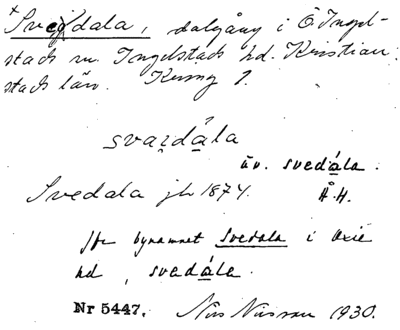 × Svejdala, dalgång i Ö. Ingel-
stads sn. Ingelstads hd. Kristian-
stads län. Kumg 1.
svai̯dåla
äv. svedåla.
Svedala jb 1874. Å.H.
Jfr bynamnet Svedala i Oxie
hd, svedåla.
Nr 5447. Nils Nilsson 1930.